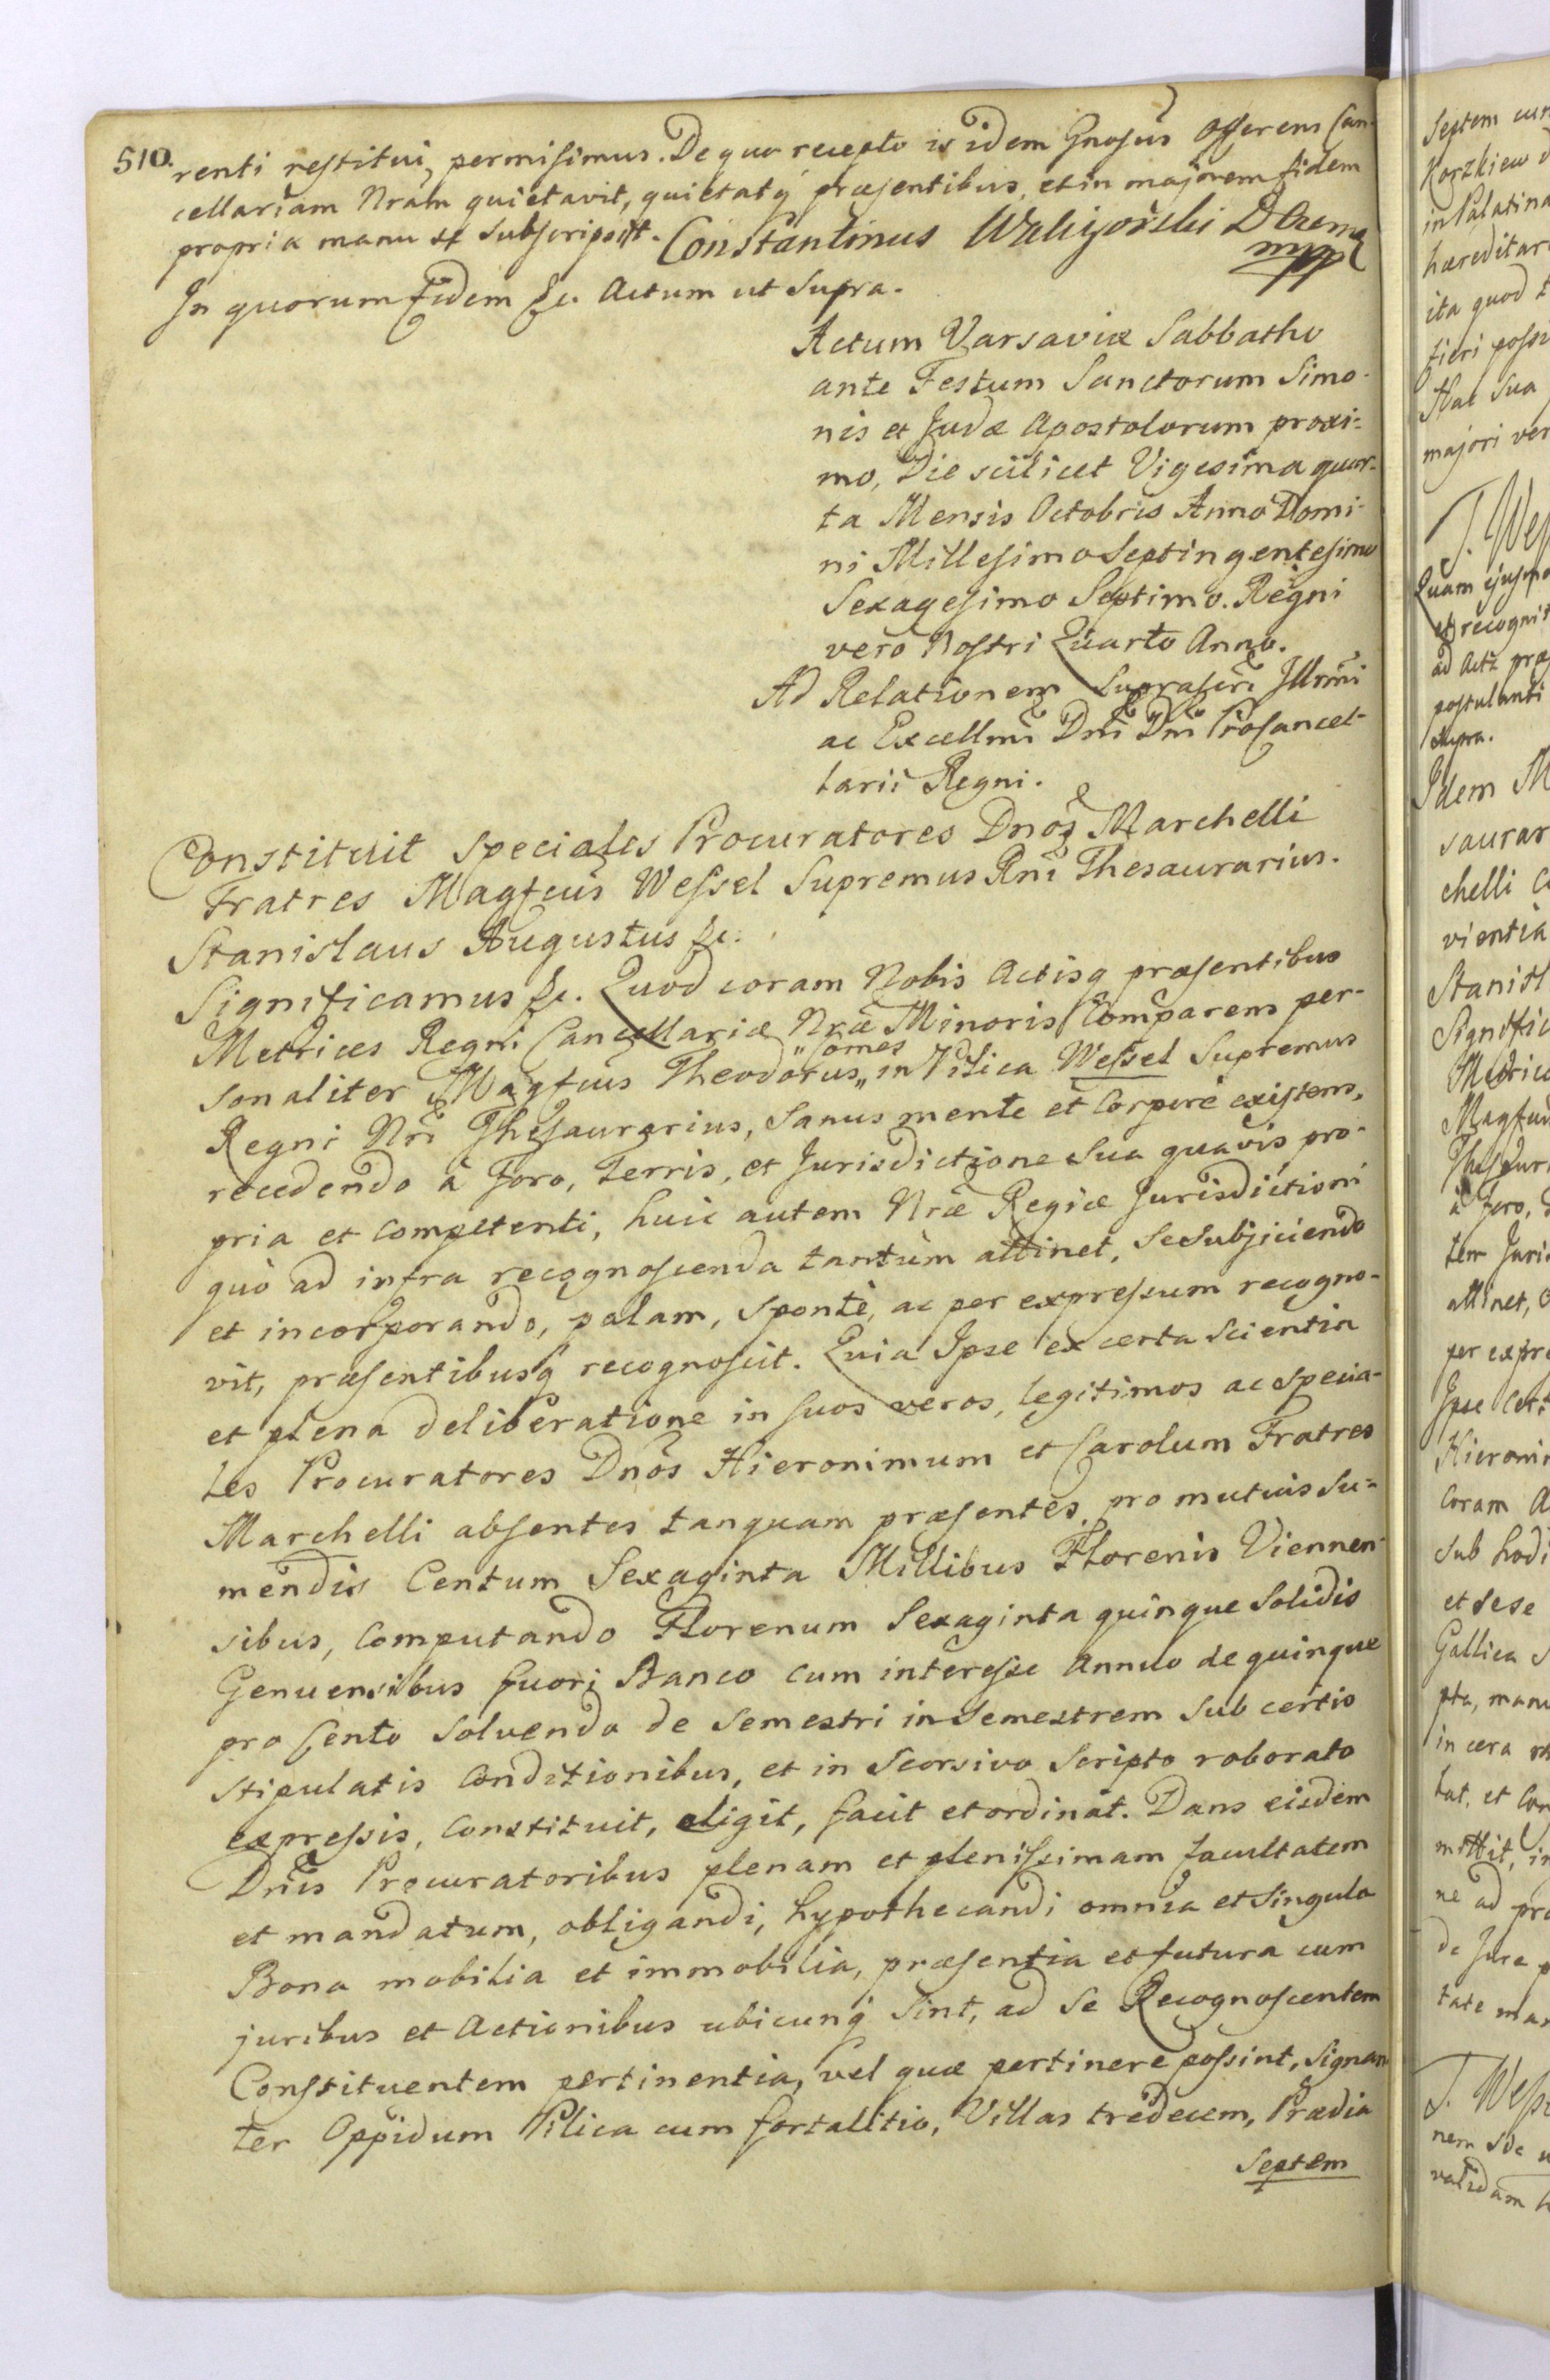 510.
renti restitui, permisimus. De quo recepto is idem Gnosus Offerens Can-
cellariam Nram quietavit, quietatq præsentibus, et in majorem fidem
propria manu se subscripsit. Constantinus Waligórski
mpp
In quorum fidem &c. Actum ut supra.
Actum Varsaviæ Sabbatho
ante Festum Sanctorum Simo-
nis et Judæ Apostolorum proxi-
mo, Die scilicet Vigesima quar-
ta Mensis Octobris Anno Domi-
ni Millesimo Septingentesimo
Sexagesimo Septimo. Regni
vero Nostri Quarto Anno.
Ad Relationem Suprascri Illrmi
ac Excellmi Dni Dni ProCancel-
larii Regni.
Constituit Speciales Procuratores Dnos Marchelli
Fratres Magfcus Wessel Supremus Rni Thesaurarius.
Stanislaus Augustus &c.
Significamus &c. Quod coram Nobis Actisq præsentibus
Metrices Regni Cancellariæ Nræ Minoris Comparens per-
sonaliter Magfcus Theodorus „Comes„ in Pilica Wessel Supremus
Regni Nri Thesaurarius, Sanus mente et Corpore existens,
recedendo à Foro, Terris, et Jurisdictione sua quavis pro-
pria et competenti, huic autem Nræ Regiæ Jurisdictioni
quò ad infra recognoscenda tantùm attinet, se subjiciendo
et incorporando, palam, sponte, ac per expressum recogno-
vit, præsentibusq recognoscit. Quia Ipse ex certa scientia
et plena deliberatione in suos veros, legitimos ac specia-
les Procuratores Dnos Hieronimum et Carolum Fratres
Marchelli absentes tanquam præsentes, pro mutuis su-
mendis Centum Sexaginta Millibus Florenis Viennen-
sibus, Computando Florenum Sexaginta quinque Solidis
Genuensibus fuori Banco cum interesse annuo de quinque
pro Cento solvendo de Semestri in Semestrem sub certis
stipulatis Conditionibus, et in Seorsivo Scripto roborato
expressis, Constituit, eligit, facit et ordinat. Dans eisdem
Dnis Procuratoribus plenam et plenissimam facultatem
et mandatum, obligandi, hypothecandi omnia et singula
Bona mobilia et immobilia, præsentia et futura cum
juribus et Actionibus ubicunq sint, ad se Recognoscentem
Constituentem pertinentia, vel quæ pertinere possint, signan-
ter Oppidum Pilica cum fortalitio, Villas tredecem, Prædia
Septem
Septem cum
in Palatina
hæreditar
ita quod
fieri possi
Hac sua
majori ver
T. Wes
Quam ejusmo
et recognit
ad Acta præ
postulanti
supra.
Idem M
saurar
chelli C
vientia
Stanisl
Signific
Metrice
Magfcu
Thesaur
à Foro,
tem Juris
attinet,
per expre
Ipse Cert
Hieronim
Coram A
sub hodi
et sese
Gallica S
pta, manu
in cera
bat, et Con
mittit, in
ne ad pro
de Jure p
tate man
T. Wess
nem
validam